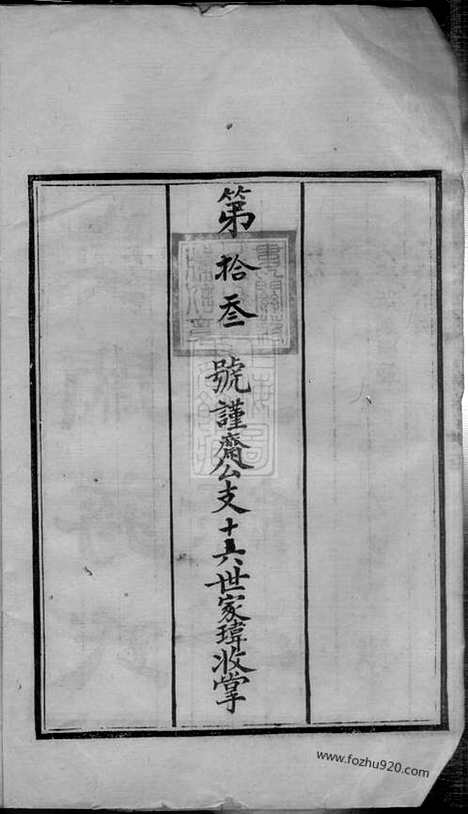 第拾叁號謹齋公支十六世家瑋收掌
www.fozhu920.com